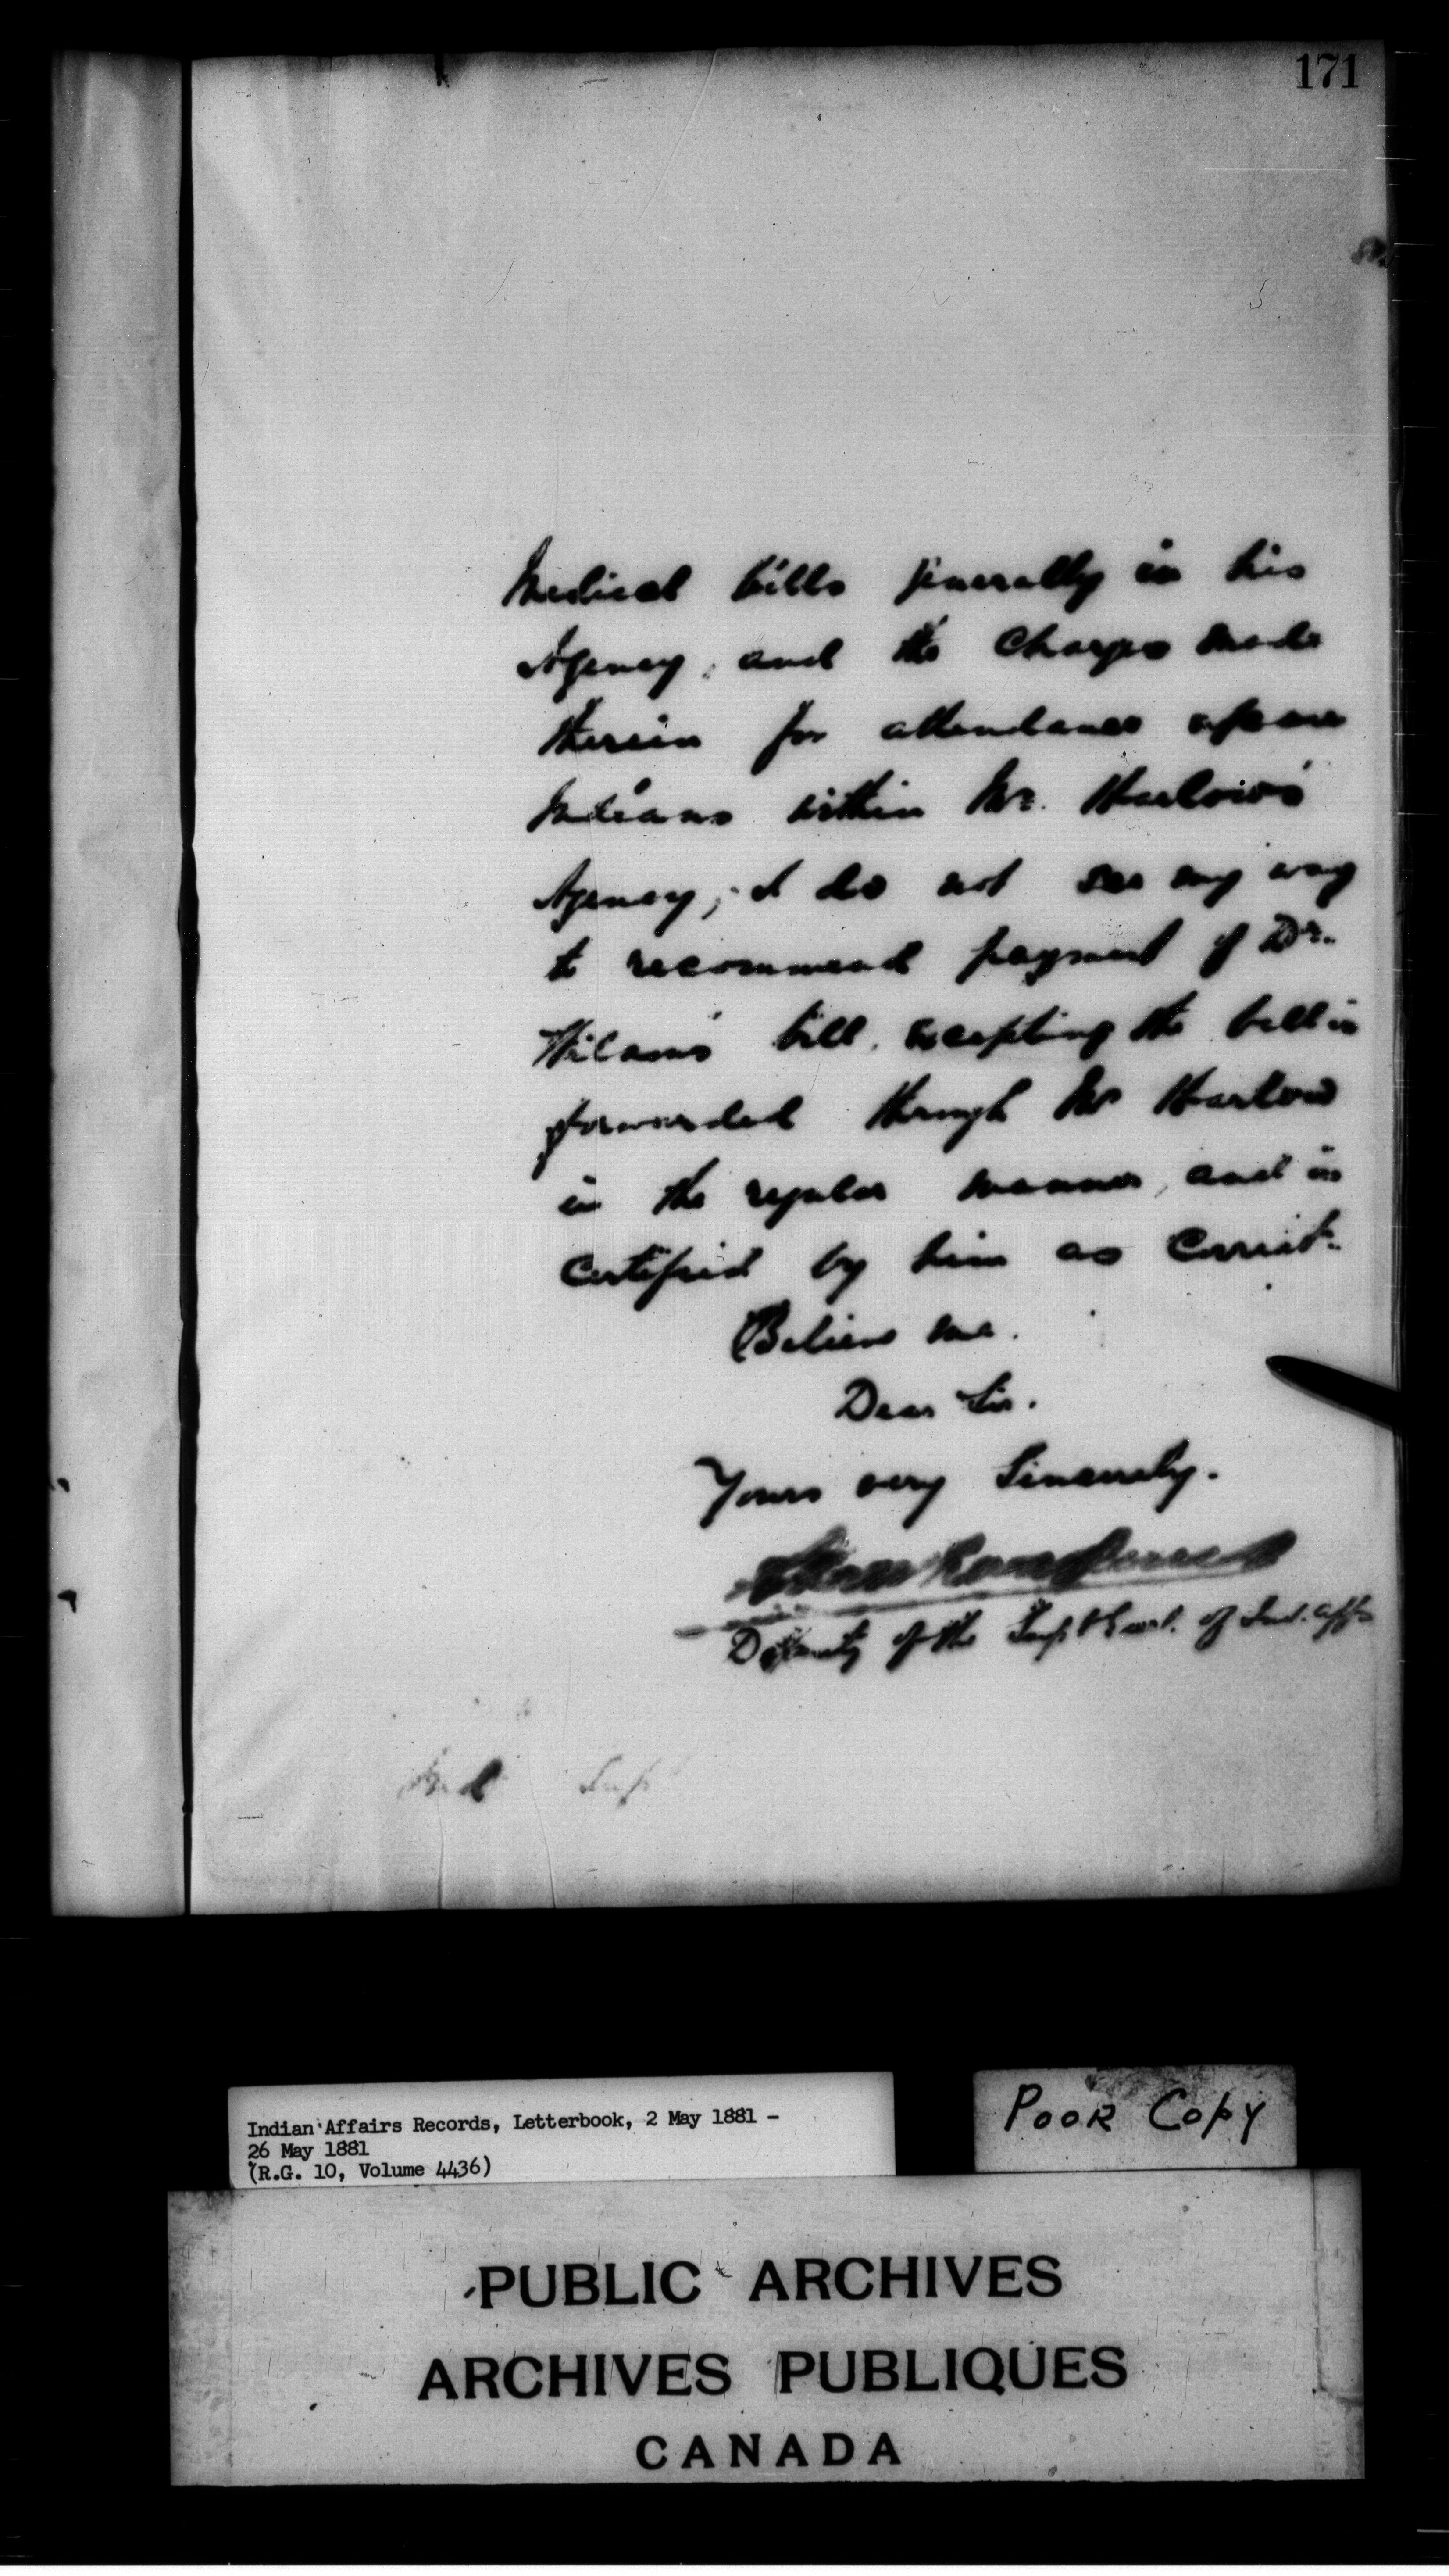 171
Medical bills generally in his
Agency, and the Charges made
therein for attendance upon
Indians within Mr. Harlow's
Agency, I do not see my way
to recommend payment of Dr.
bill, excepting the bill is
forwarded through Mr Harlow
in the regular manner, and is
Certified by him as Correct.
Believe me.
Dear Sir.
Yours very Sincerely.
Deputy of the Supt Genl. of Ind. Affs
Ind Supt
Indian Affairs Records, Letterbook, 2 May 1881 -
26 May 1881
(R.G. 10, Volume 4436)
POOR COPY
PUBLIC ARCHIVES
ARCHIVES PUBLIQUES
CANADA